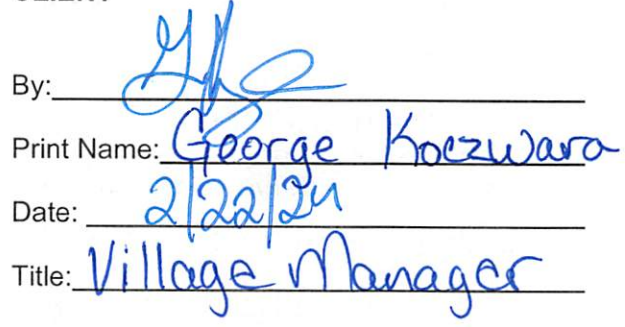 By:
Print Name: George Koczwara
Date: 2/22/24
Title: Village Manager